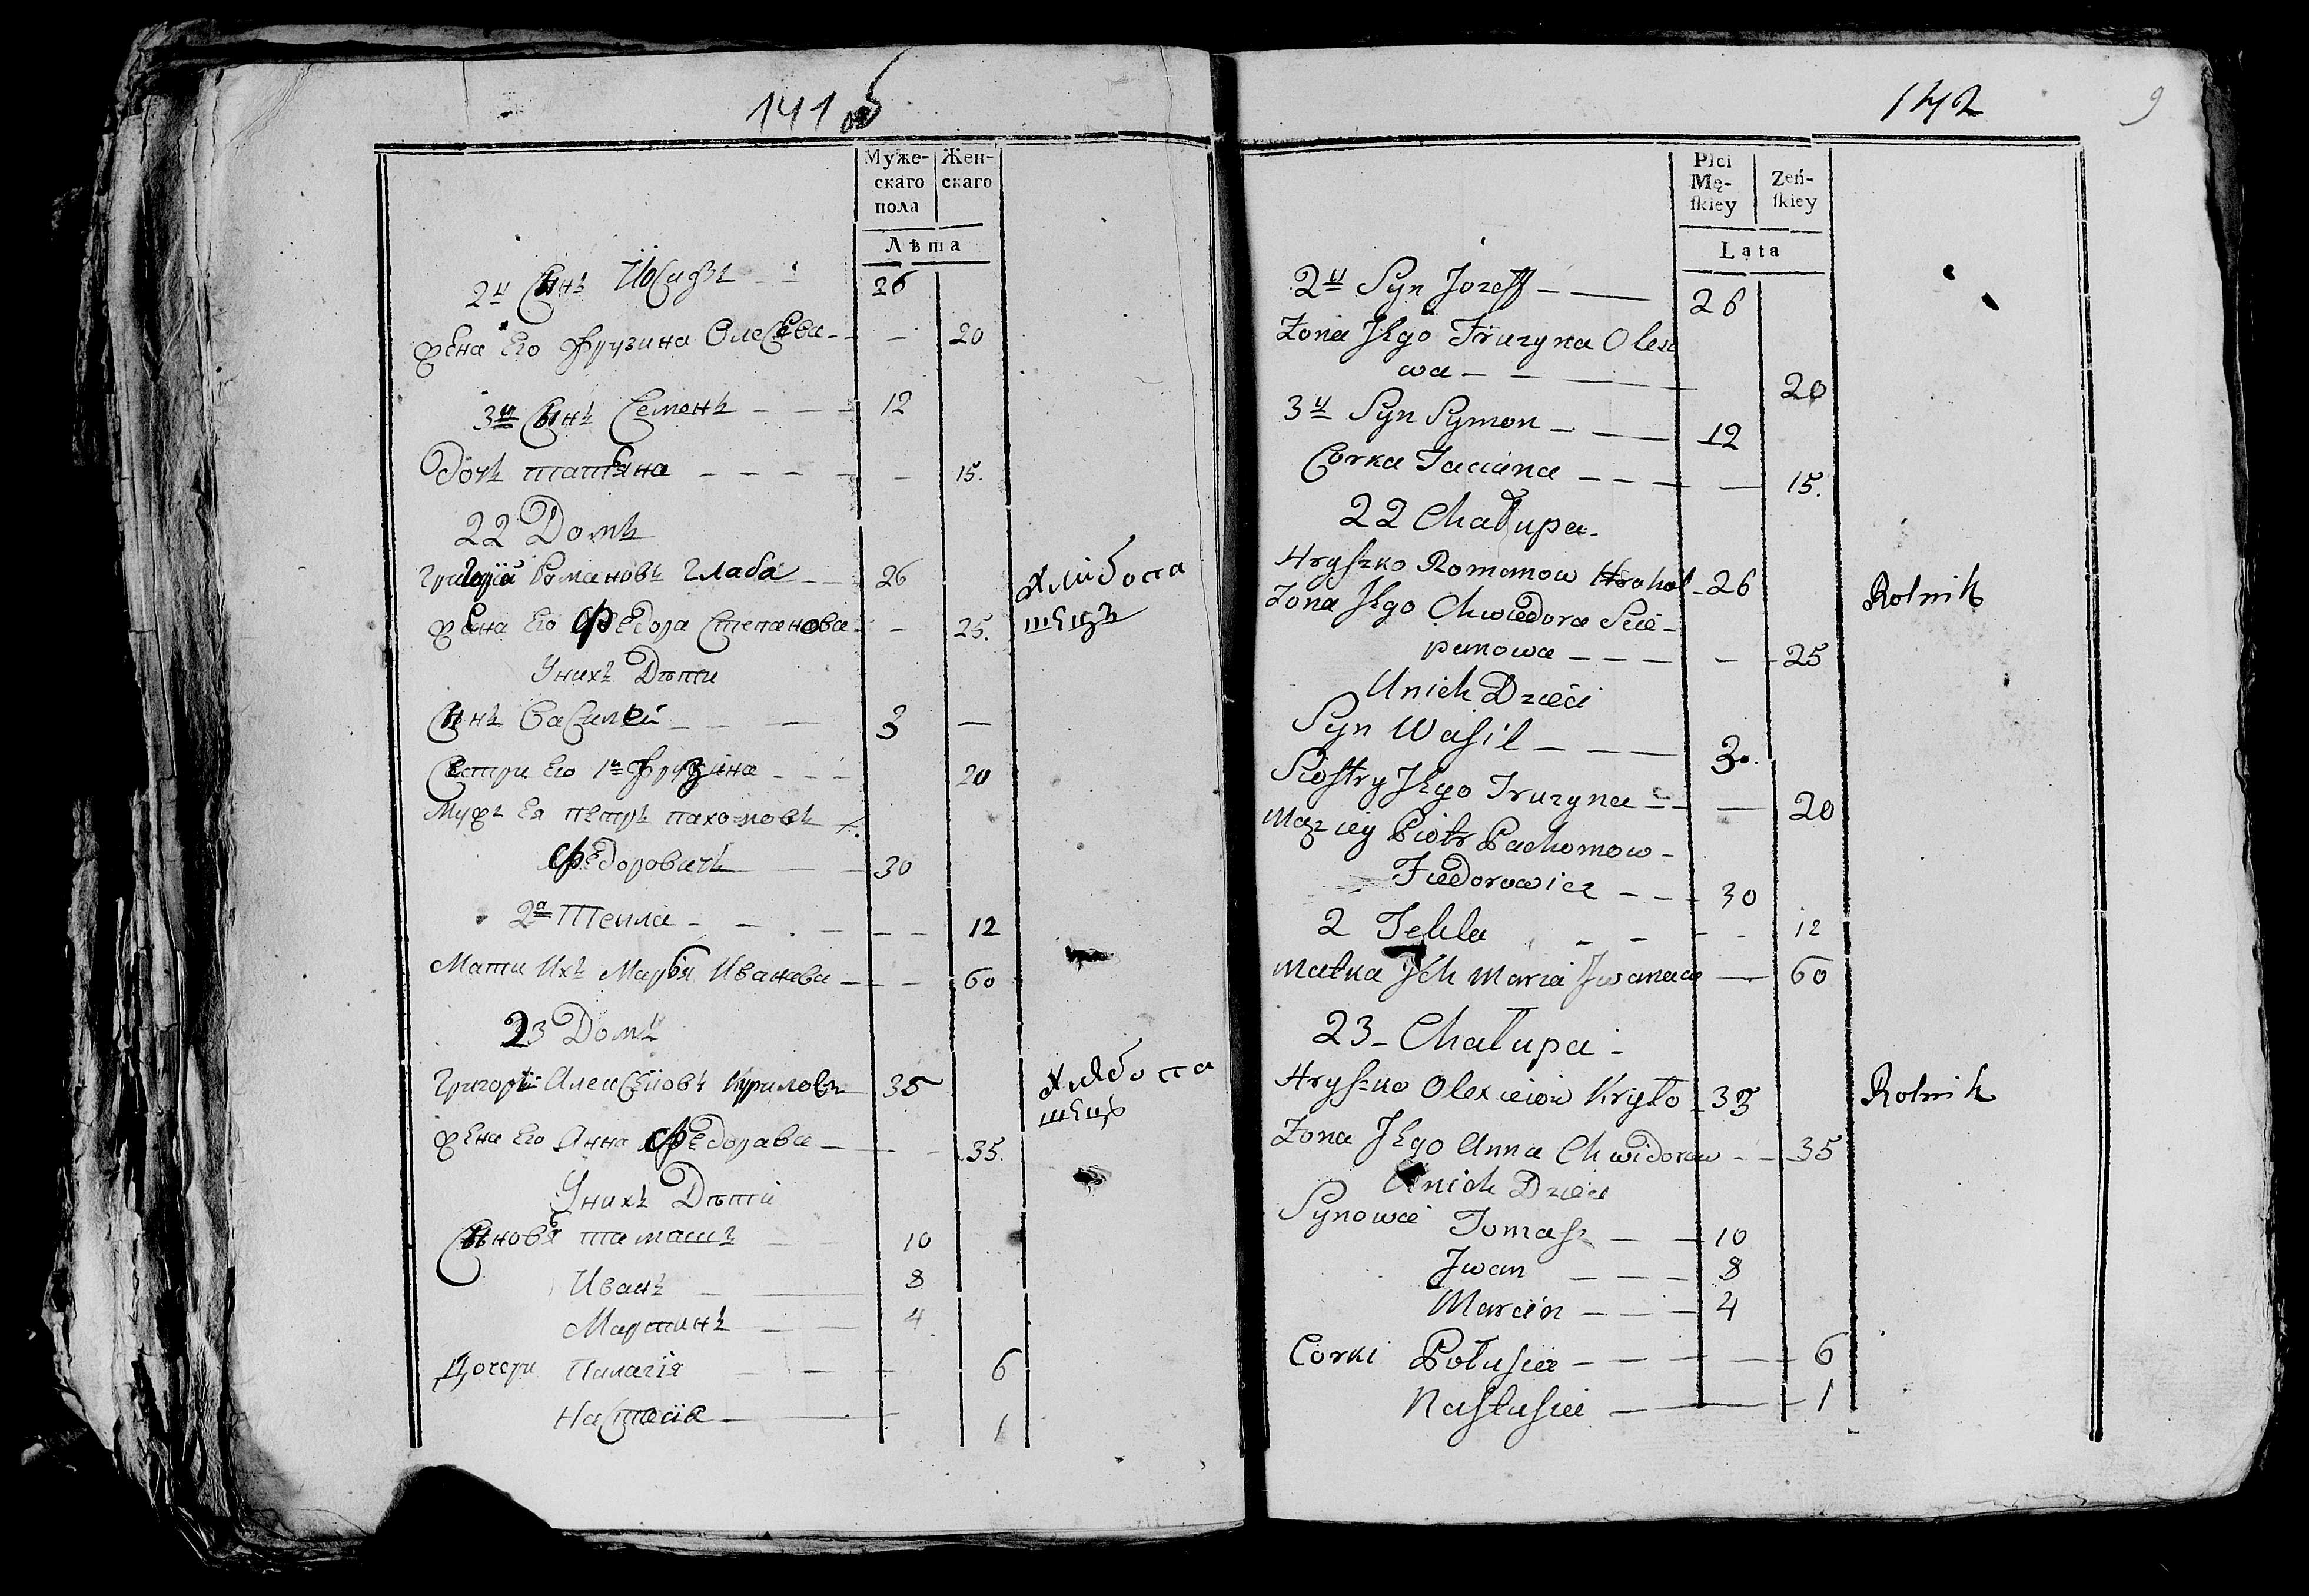 141 об
Муже-
скаго
пола
Жен-
скаго
Лѣта
2й Сынъ Иосифъ - - 26
Жена Его Фрузина Олесѣева - - 20
3й Сынъ Семенъ - - - 12
Дочь татьяна - - - - - 15.
22 Домъ
Григорій Романовъ Глаба - 26
Хлибопа
шецъ
Жена Его Федора Степанова - - 25.
Унихъ Дѣти
Сынъ Василей - - - 3 -
Сестри Его 1я Фрузина - - - 20
Мужъ Ея петръ пахомовъ
Федоровичъ - - 30
2я Текла - - - - - - 12
Мати Ихъ Марья Иванава - - - 60
23 Домъ
Григорій Алексѣновъ Куриловъ 35
Хлѣбопа
шецъ
Жена Его Анна Федорава - - - 35.
Унихъ Дѣти
Сыновя тамашъ - - 10
Иванъ - - 8
Мартинъ - - 4
Дочери Палагія - - - 6
Настасіа - - - 1
142
9
Płci
Mę-
ſkiey
Zeń-
ſkiey
Lata
2й Syn Jozeff - - 26
Zona Jego Fruzyna Olexe
wa - - - 20
3й Syn Symon - - 12
Corka Taciana - - - - 15.
22 Chałupa.
Hryſzko Romanow Hrohol - 26
Rolnik
Zona Jego Chwiedora Scie-
panowa - - - - - 25
Unich Dzieci
Syn Waſil - - - 3.
Sioſtry Jego Fruzyna - - - 20
Mąz iey Piotr Pachomow -
Fiedorowicz - - - 30
2 Tekla - - - - 12
Matka Jch Maria Jwanaw - 60
23 - Chałupa -
Hryſzko Olexieiow Kryło - 33
Rolnik
Zona Jego Anna Chwidorow - - 35
Unich Dzieci
Synowie Tomaſz - - 10
Jwan - - - 8
Marcin - - - 4
Corki Połuſia - - - - 6
Naſtuſia - - - 1